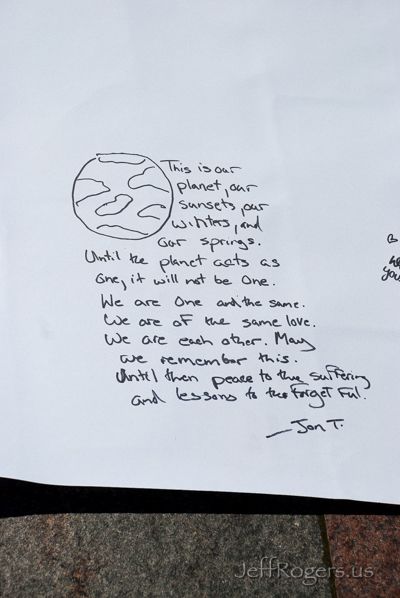 This is our
planet, our
sunsets, our
winters, and
our springs.
Until the planet acts as
one, it will not be One.
We are One and the same.
We are of the same love.
We are each other. May
we remember this.
Until then peace to the suffering
and lessons to the forget ful.
— Jon T.
you
JeffRogers.us